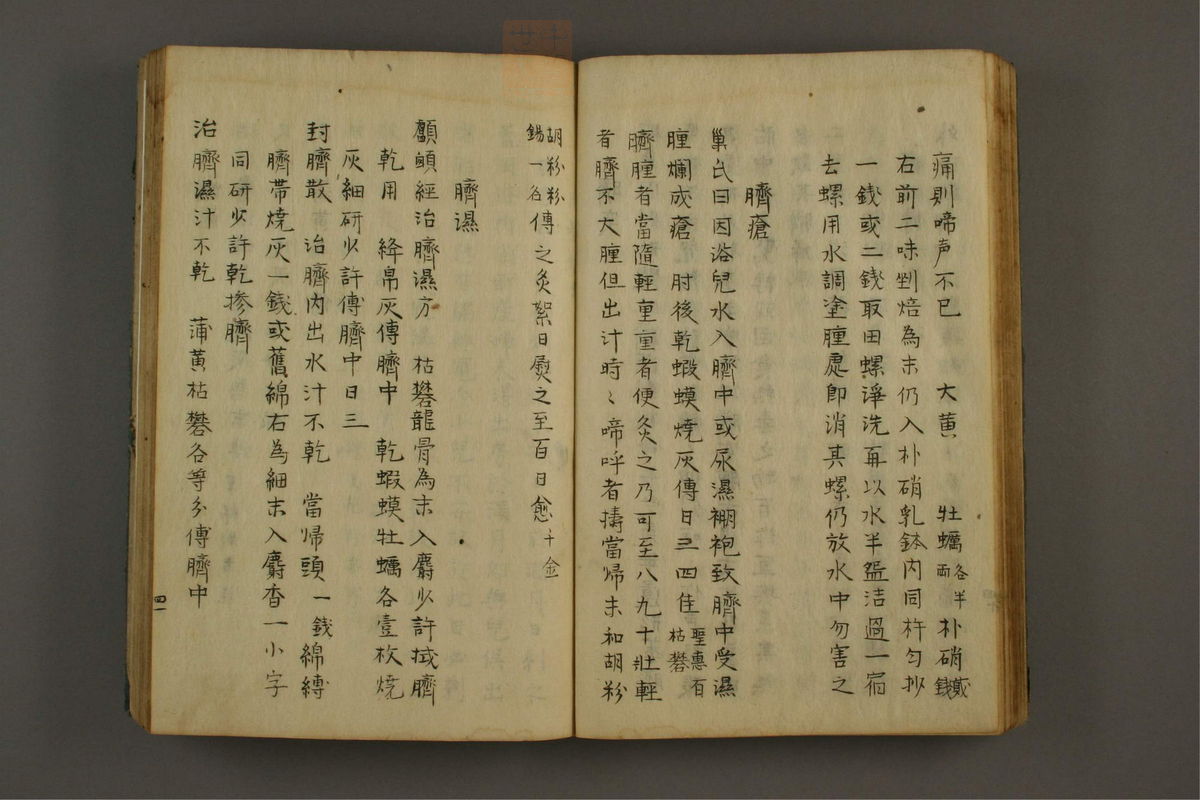 痛則啼声不已　大黄　牡蠣各半両朴硝貳錢
右前二味剉焙為末仍入朴硝乳鉢内同杵匀抄
一錢或二錢取田螺淨洗再以水半盌洁過一宿
去螺用水調塗腫處即消其螺仍放水中勿害之
臍瘡
巢氏曰因浴兒水入臍中或尿濕裯袍致臍中受濕
腫爛成瘡　肘後乾蝦蟆燒灰傅日三四佳　聖惠百枯礬
臍腫者當隨輕重重者便灸之乃可至八九十壯輕
者臍不大腫但出汁時〻啼呼者擣當帰末和胡粉
胡粉粉錫一名傅之灸絮日熨之至百日愈　千金
臍濕
顱顖經治臍濕方　枯礬龍骨為末入麝少許拭臍
乾用　絳帛灰傅臍中　乾蝦蟆牡蠣各壹枚燒
灰細研少許傅臍中日三
封臍散　治臍内出水汁不乾　當帰頭一錢綿縛
臍帯燒灰一錢或舊綿右為細末入麝香一小字
同研少許乾摻臍
治臍濕汁不乾　蒲黄枯礬各等分傅臍中
四一